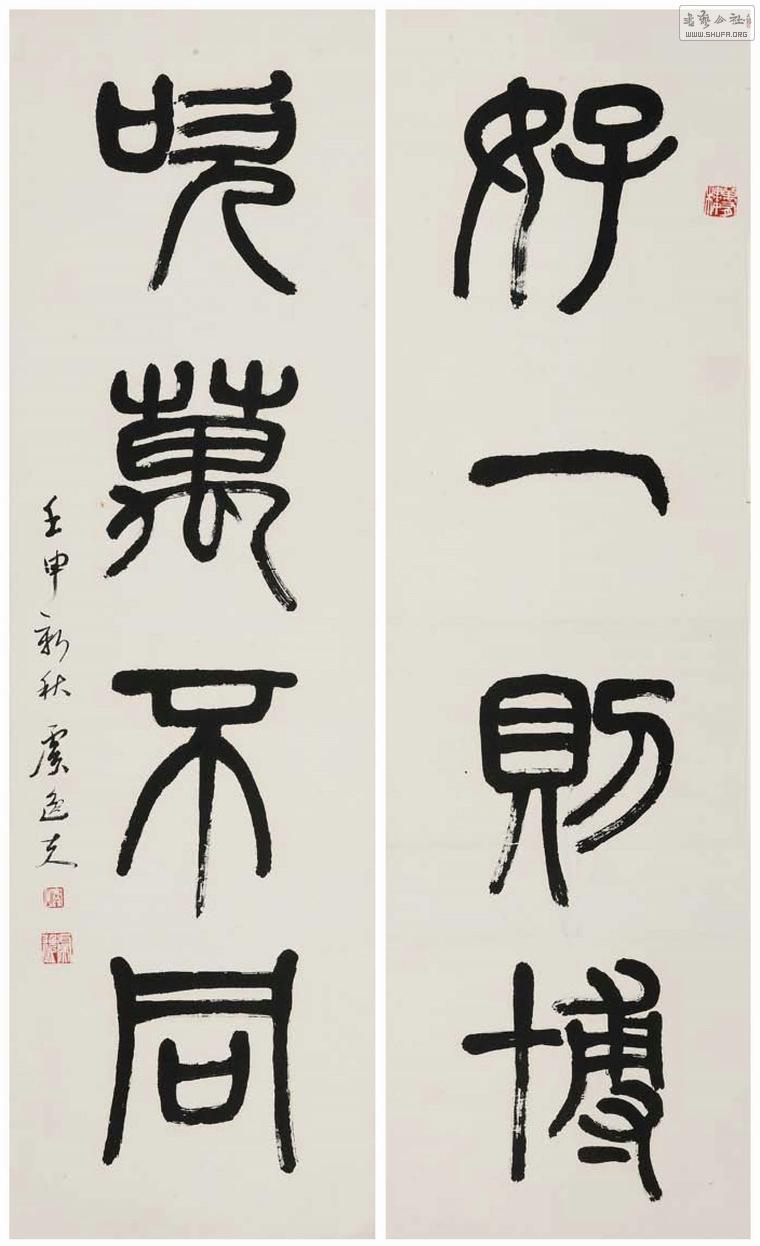 好一則博
吹萬不同
壬申新秋虞逸夫
書藝公社
WWW.SHUFA.ORG